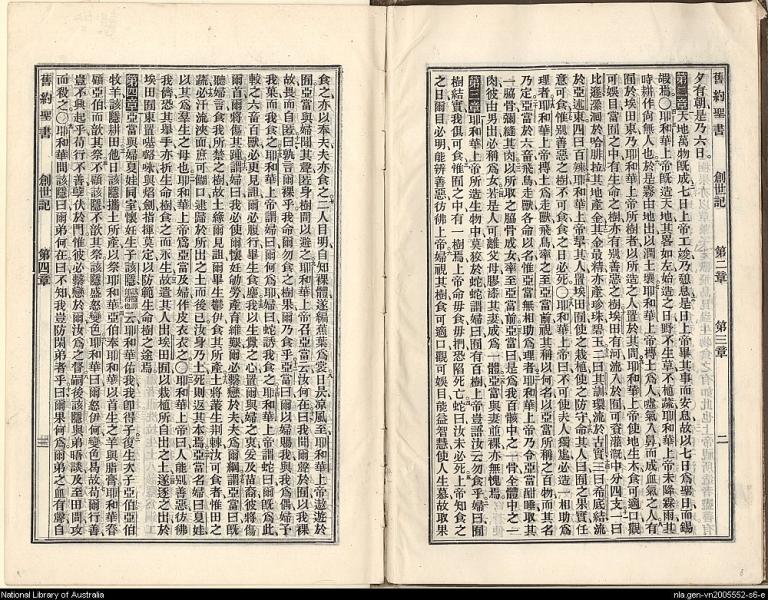 舊約聖書 創世記 第二章 第三章 二
夕有朝是乃六日。
第二章 天地萬物既成七日上帝工竣乃憩息是日上帝畢其事而安息故以七日爲聖日而錫
嘏焉〇耶和華上帝既造天地其畧如左始造之日野不生草不植蔬耶和華上帝未降霖雨其
時耕作尚無人也於是霧由地出以潤土壤耶和華上帝摶土爲人噓氣入鼻而成血氣之人有
囿於埃田東乃耶和華上帝所樹者以所造之人置於其間耶和華上帝使地生木食可適口觀
可娛目當囿之中有生命之樹亦有別善惡之樹埃田有河流入於囿以資灌溉中分四支一曰
比遜瀠洄於哈腓拉在其地產金其金最精亦產珍珠碧玉二曰其訓環流於古實三曰希底結流
於亞述東四曰百辣耶和華上帝挈其人置埃田囿使之栽植使之防守命其人曰囿之果實任
意可食惟別善惡之樹不可食食之日必死〇耶和華上帝曰不可使夫人獨處必造一相助爲
理者耶和華上帝摶土爲走獸飛鳥率至亞當前視其稱以何名以亞當所稱之百物而其名
乃定亞當於六畜飛鳥走獸各命以名惟亞當無相助爲理者耶和華上帝乃令亞當酣睡取其
一脇骨彌縫其肉以所取之脇骨成女率至亞當前亞當曰是爲我百骸中之一骨全體中之一
肉彼由男出必稱爲女是人可離父母膠漆其妻成爲一體亞當與妻並裸亦無愧焉
第三章 耶和華上帝所造生物中莫狡於蛇蛇謂婦曰囿有百樹上帝豈語汝云勿食乎婦曰囿
樹結實我儕可食惟囿之中有一樹焉上帝命毋食毋捫恐陷死亡蛇曰汝未必死上帝知食之
之日爾目必明能辨善惡彷彿上帝婦視其樹食可適口觀可娛目能益智慧使人生慕故取果
食之亦以奉夫夫亦食之二人目明自知裸體遂編蕉葉爲裳日昃凉風至耶和華上帝遨遊於
囿亞當與婦聞其聲匿身樹間以避之耶和華上帝召亞當云汝何在曰我聞爾聲於囿以我裸
故畏而自匿曰孰言爾裸乎我命爾勿食之樹果爾乃食乎亞當曰爾以婦賜我與我爲偶婦予
我菓而我食之耶和華上帝謂婦曰爾何爲耶婦曰蛇誘我食之耶和華上帝謂蛇曰爾既爲此
較之六畜百獸必更見詛爾必腹行畢生食塵我以生釁之心置爾與婦之衷爰及苗裔彼將傷
爾首爾將傷其踵謂婦曰我必使爾懷妊劬勞產育維艱爾必繫戀於夫夫爲爾綱謂亞當曰爾既
聽婦言食我所禁之樹故土緣爾見詛爾畢生鬱伊食其所產土將叢生荆棘汝可食者惟田之
蔬必汗流浹面庶可餬口逮歸於所出之土而後已汝身乃土死則返其本焉亞當名婦曰夏娃
以其爲羣生之母也耶和華上帝爲亞當及婦作皮衣衣之〇耶和華上帝曰人能別善惡彷彿
我儕恐其舉手亦折生命樹食之而永生故遣其人出埃田囿以栽植所自出之土遂逐之出於
埃田囿東置𠼻𡀔咏具燄劍指揮莫定以防範生命樹之途焉
第四章 亞當與婦夏娃同室懷妊生子該隱云耶和華佑我我卽得子復生次子亞伯亞伯
牧羊該隱耕田他日該隱攜土所產以祭耶和華亞伯奉耶和華以首生之羊與脂膏耶和華眷
顧亞伯而歆其祭不顧該隱不歆其祭該隱怒甚變色耶和華曰爾怒伊何變色曷故苟爾行善
豈不興起乎苟行不善孽伏於門惟彼必繫戀於爾汝爲之督嗣後該隱與弟晤談及至田間攻
而殺之〇耶和華問該隱曰爾弟何在曰不知我豈防閑弟者乎曰爾果何爲爾弟之血有聲自
舊約聖書 創世記 第四章 三
National Library of Australia
nla.gen-vn2005552-s6-e